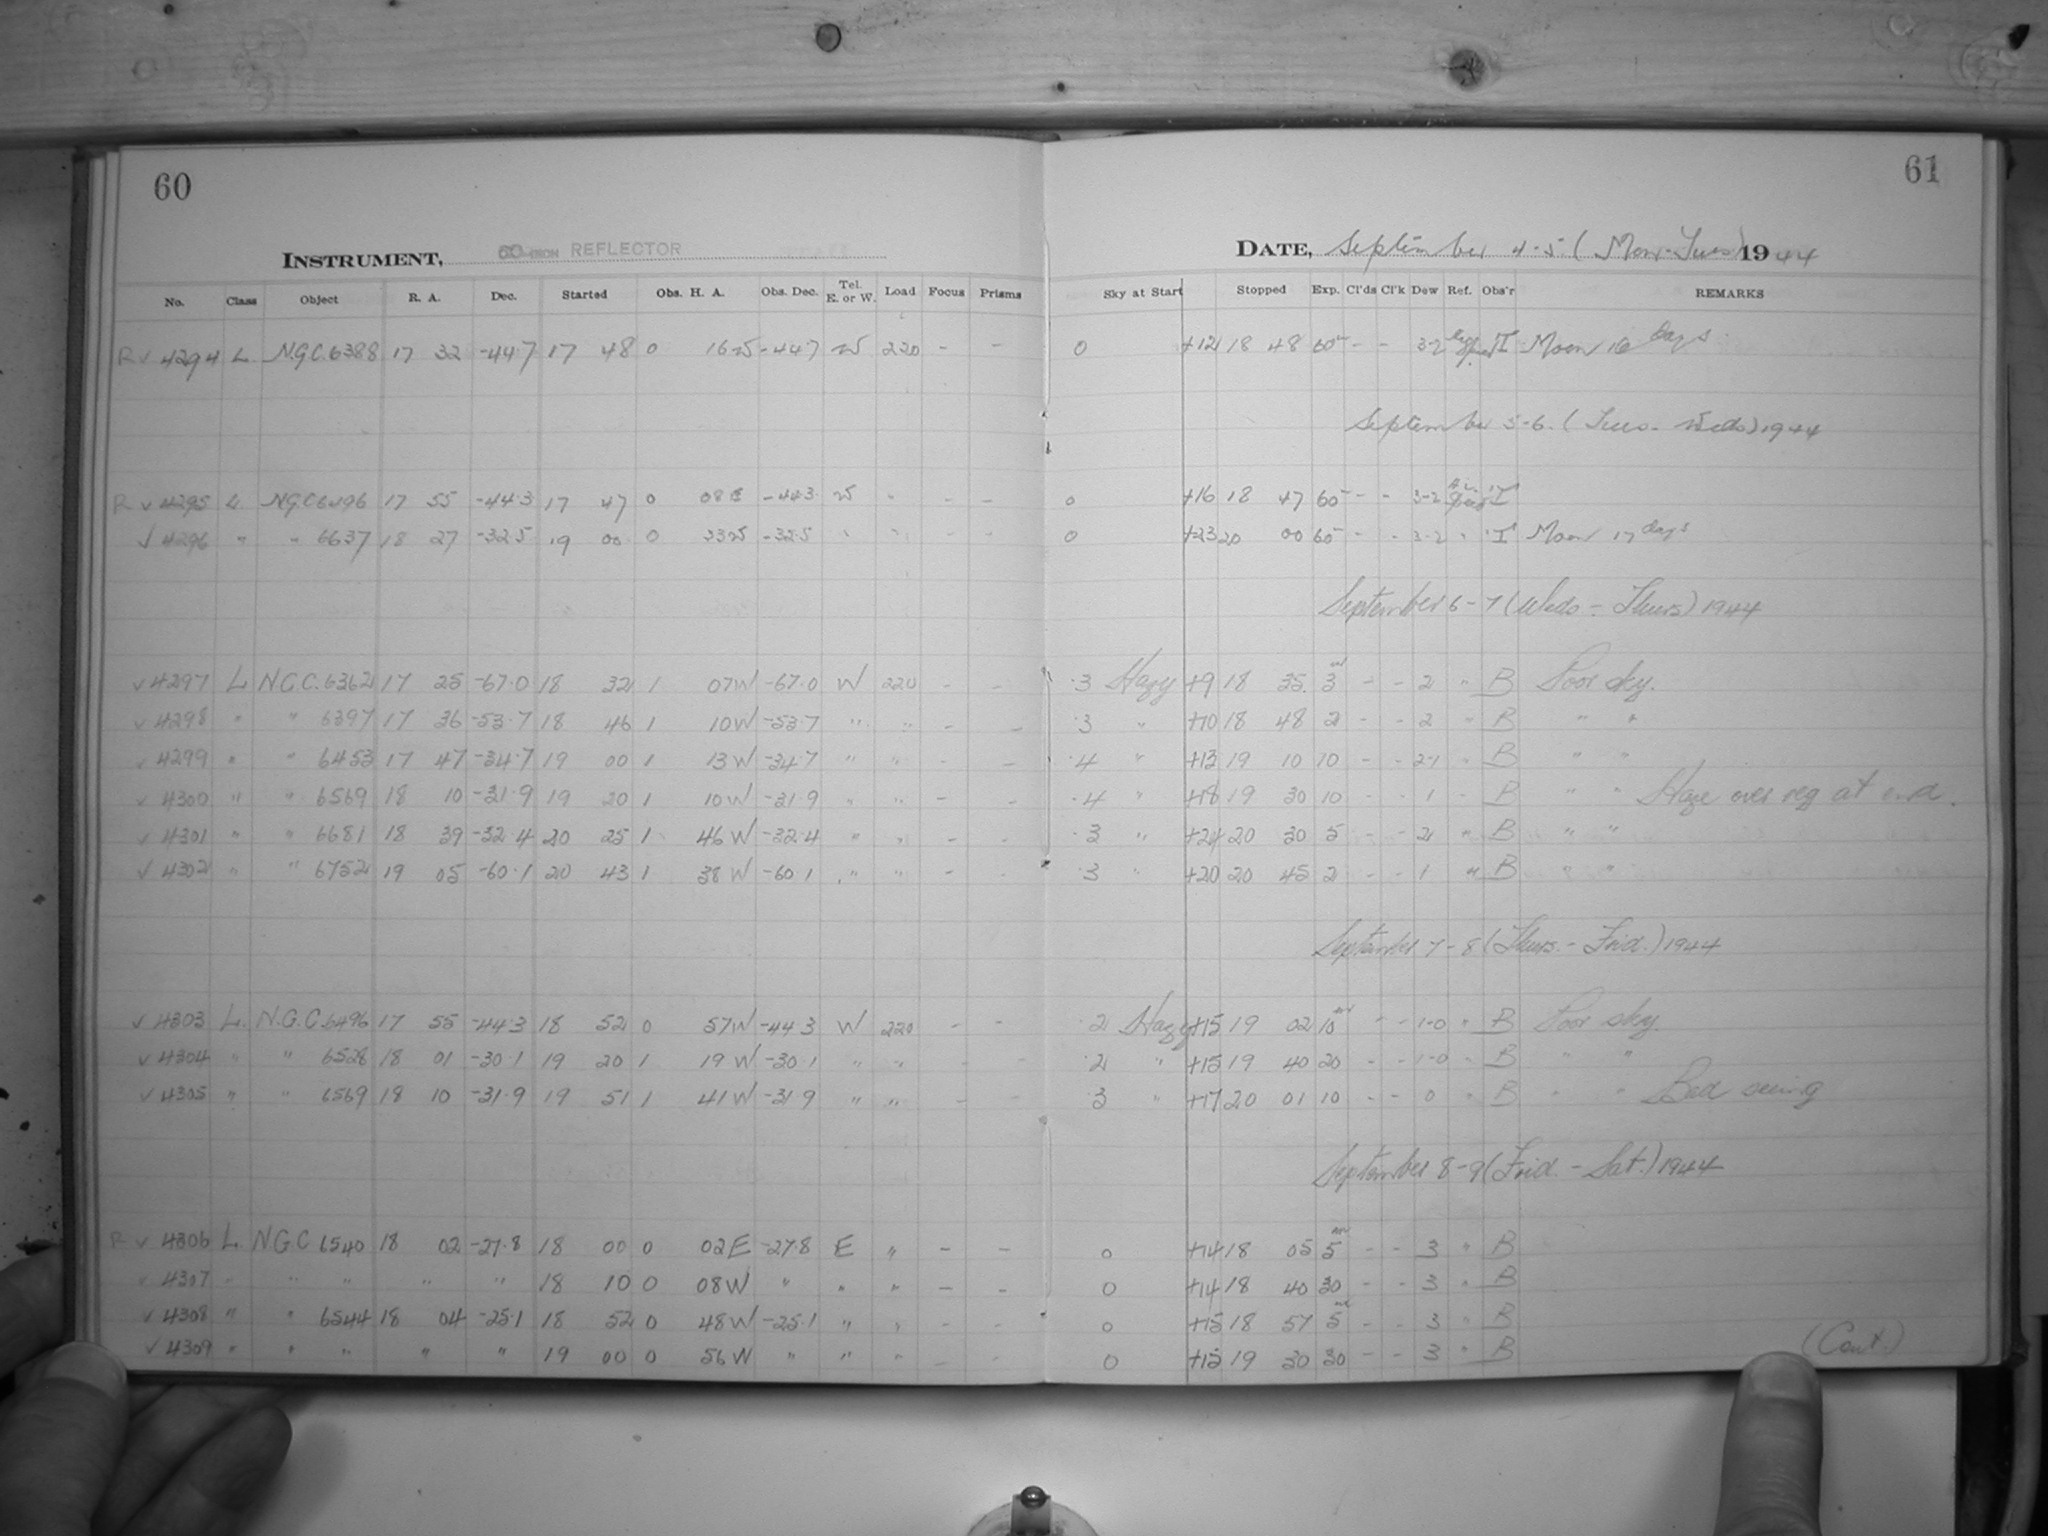 60
61
INSTRUMENT, 60-INCH REFLECTOR
DATE, September 4-5. (Mon-Tues) 1944
No. Class Object R. A. Dec. Started Obs. H. A. Obs. Dec. Tel. E. or W. Load Focus Prisms Sky at Start Stopped Exp. Cl'ds Cl'k Dew Ref. Obs'r REMARKS
R √ 4294 L N.G.C.6388 17 32 -44.7 17 48 0 16W -44.7 W 220 - - 0 +12 18 48 60 - - 3-2 I Moon 16 days
September 5-6. (Tues- Weds) 1944
R √ 4295 L. N.G.C.6496 17 55 -44.3 17 47 0 08E -44.3 W " - - 0 +16 18 47 60 - - 3-2 I
√ 4296 " " 6637 18 27 -32.5 19 00 0 33W -32.5 " " - - 0 +23 20 00 60 - - 3-2 " I Moon 17 days
September 6-7 (Weds - Thurs) 1944
√ 4297 L N.G.C.6362 17 25 -67.0 18 32 1 07W -67.0 W 220 - - .3 Hazy +9 18 35. 3 - - 2 " B Poor sky.
√ 4298 " " 6397 17 36 -53.7 18 46 1 10W -53.7 " " - - .3 " +10 18 48 2 - - 2 " B " "
√ 4299 " " 6453 17 47 -34.7 19 00 1 13W -34.7 " " - - .4 " +13 19 10 10 - - 2-1 " B " "
√ 4300 " " 6569 18 10 -31.9 19 20 1 10W -31.9 " " - - .4 " +18 19 30 10 - - 1 - B " " Haze over reg at end.
√ 4301 " " 6681 18 39 -32.4 20 25 1 46W -32.4 " " - - .3 " +21 20 30 5 - - 2 " B " "
√ 4302 " " 6752 19 05 -60.1 20 43 1 38W -60.1 " " - - .3 " +20 20 45 2 - - 1 " B " "
September 7-8 (Thurs. - Frid.) 1944
√ 4303 L. N.G.C.6496 17 55 -44.3 18 52 0 57W -44.3 W 220 - - .2 Hazy +15 19 02 10 - - 1-0 " B Poor sky.
√ 4304 " " 6528 18 01 -30.1 19 20 1 19W -30.1 " " - - .2 " +15 19 40 20 - - 1-0 " B " "
√ 4305 " " 6569 18 10 -31.9 19 51 1 41W -31.9 " " - - .3 " +17 20 01 10 - - 0 " B " " Bad seeing
September 8-9 (Frid. - Sat.) 1944
R √ 4306 L N G C 6540 18 02 -27.8 18 00 0 02E -27.8 E " - - 0 +14 18 05 5 - - 3 " B
√ 4307 " " " " " 18 10 0 08W " " " - - 0 +14 18 40 30 - - 3 " B
√ 4308 " " 6544 18 04 -25.1 18 52 0 48W -25.1 " " - - 0 +15 18 57 5 - - 3 " B
√ 4309 " " " " " 19 00 0 56W " " " - - 0 +15 19 30 30 - - 3 " B
(Cont.)